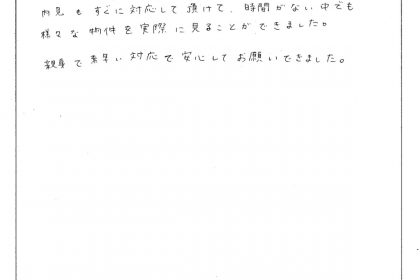 内見もすぐに対応して頂けて、時間がない中でも
様々な物件を実際に見ることができました。
親身で素早い対応で安心してお願いできました。